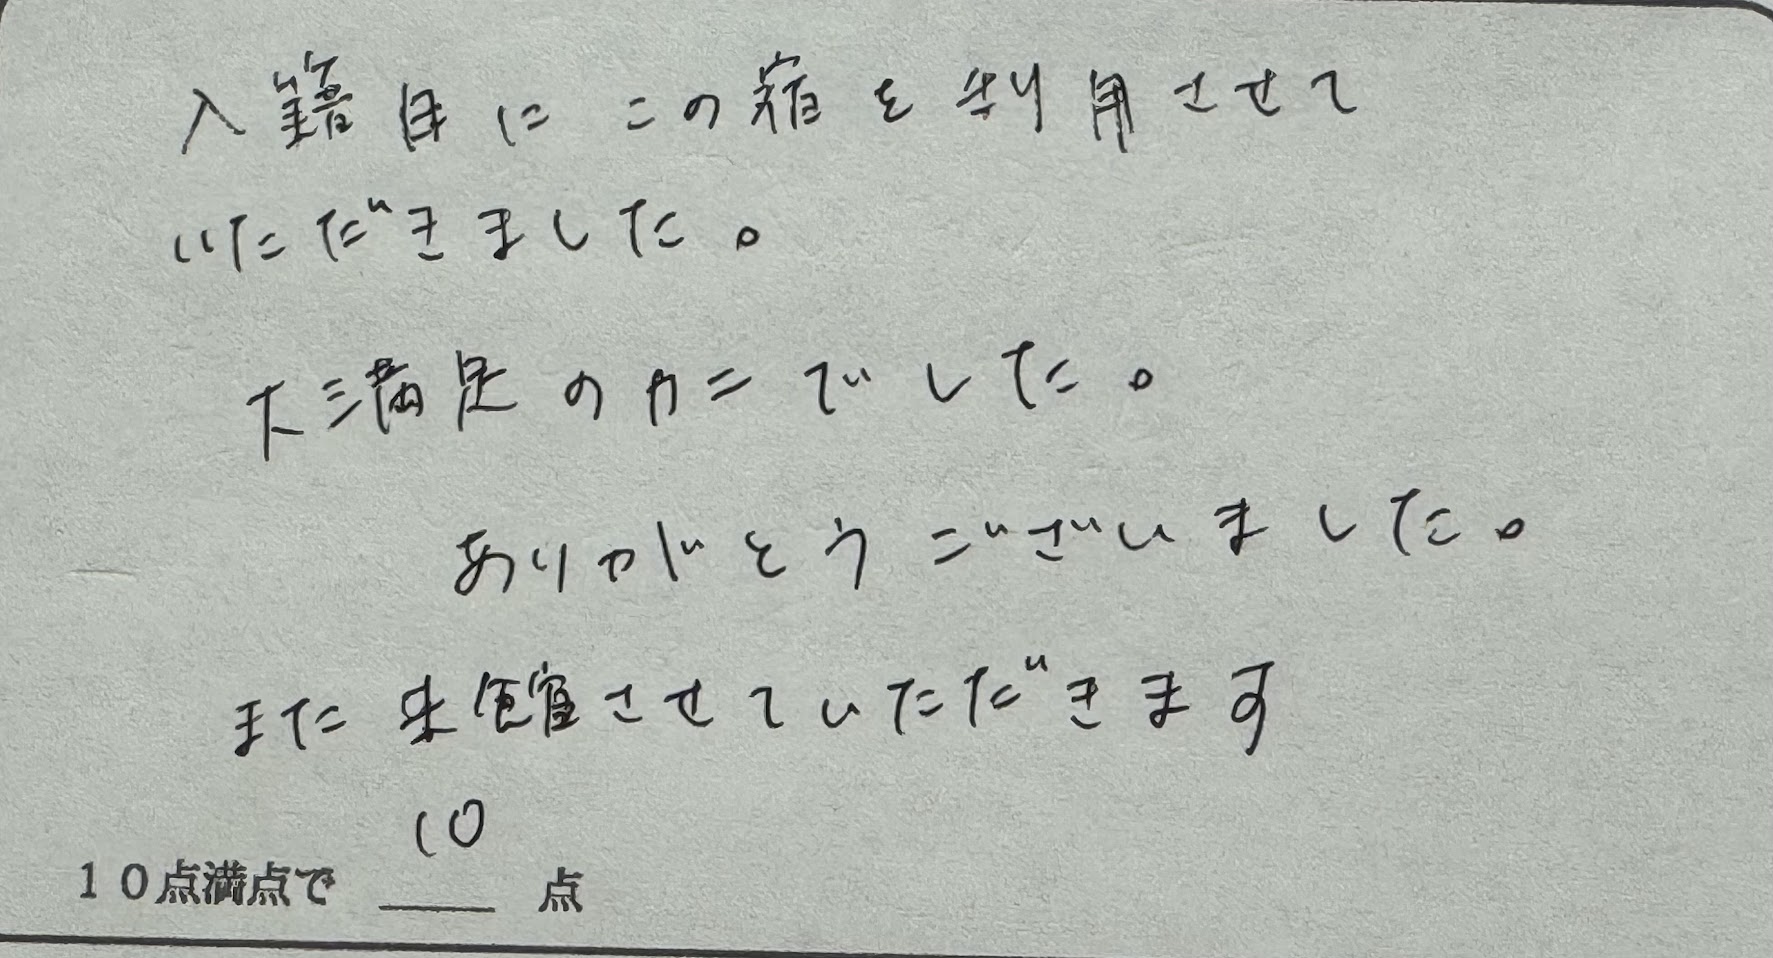 入籍日にこの宿を利用させて
いただきました。
大満足のカニでした。
ありがとうございました。
また来館させていただきます
10
10点満点で 点